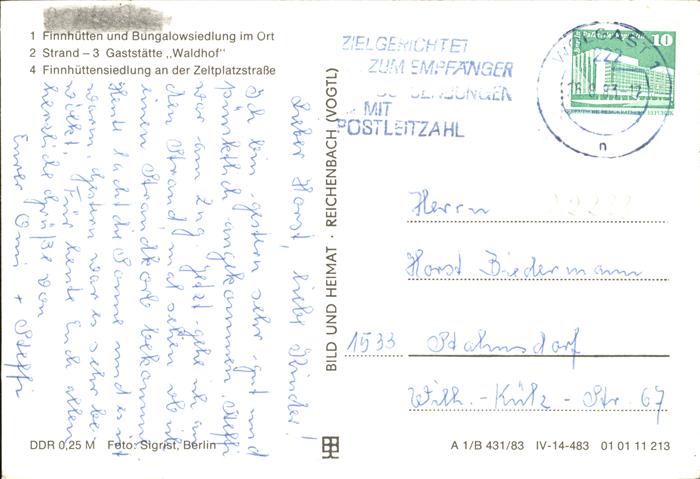 1 Finnhütten und Bungalowsiedlung im Ort
2 Strand – 3 Gaststätte „Waldhof“
4 Finnhüttensiedlung an der Zeltplatzstraße
Lieber Horst, liebe Kinder!
Ich bin gestern sehr gut und
pünktlich angekommen. Steffi
war am Zug. Jetzt gehe ich an
den Strand, mal sehen ob ich
einen Strandkorb bekomme.
Heute lacht die Sonne und es ist
warm, gestern war es sehr be
wölkt. Für heute Euch allen
herzliche Grüße von
Eurer Omi + Steffi
DDR 0,25 M Foto: Sigrist, Berlin
BILD UND HEIMAT · REICHENBACH (VOGTL)
ZIELGERICHTET
ZUM EMPFÄNGER
MIT
POSTLEITZAHL
WOLGAST 1
222
n
10
Herrn
Horst Biedermann
1533 Stahnsdorf
Wilh.-Külz-Str. 67
A 1/B 431/83 IV-14-483 01 01 11 213